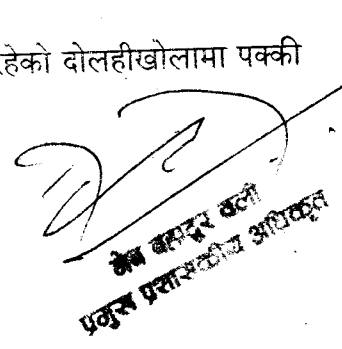 रहेको दोलहीखोलामा पक्की
बहादुर वली
प्रमुख प्रशासकीय अधिकृत